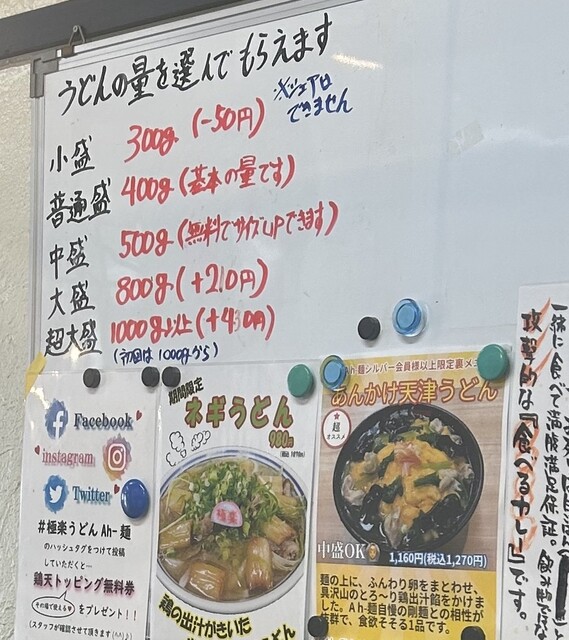 うどんの量を選んでもらえます
※シェアは
できません
小盛 300g (-50円)
普通盛 400g (基本の量です)
中盛 500g (無料でサイズUPできます)
大盛 800g (+210円)
超大盛 1000g以上 (+430円)
(初回は1000gから)
Facebook
instagram
Twitter
#極楽うどんAh-麺
のハッシュタグをつけて投稿
していただくと…
鶏天トッピング無料券
その場で使えるをプレゼント!!
(スタッフが確認させて頂きます(^^)♪)
期間限定
ネギうどん
980円
極楽
鶏の出汁がきいた
Ah-麺シルバー会員様以上限定裏メニ
あんかけ天津うどん
★
超
オススメ
中盛OK
1,160円(税込1,270円)
麺の上に、ふんわり卵をまとわせ、
具沢山のとろ〜り鶏出汁餡をかけまし
た。Ah-麺自慢の剛麺との相性が
抜群で、食欲そそる1品です。
攻撃的な『食べるカレー』です。